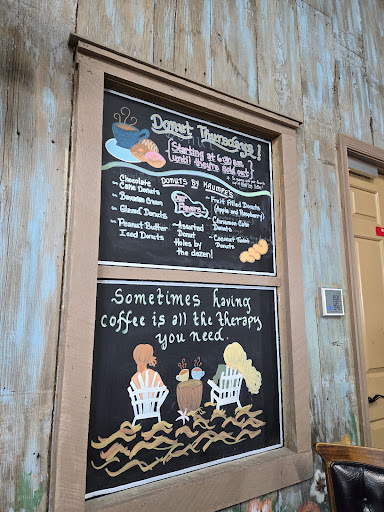 Donut Thursdays!
Starting at 6:30 am
until they're sold out
DONUTS BY KRUMPE'S
Our Flavors
Chocolate
Cake Donuts
~ Bavarian Cream
~ Glazed Donuts
~ Peanut Butter
Iced Donuts
~ Assorted
Donut
Holes by
the dozen!
~ Fruit Filled Donuts
(Apple and Raspberry)
~ Cinnamon Cake
Donuts
~ Coconut Toast
Donuts
Sometimes having
coffee is all the therapy
you need.